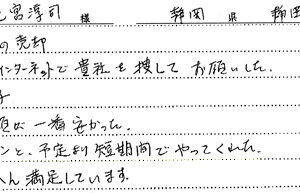 宮淳司 様 静岡 県 磐田
の売却
インターネットで貴社を捜してお願いした。
が一番安かった。
ンと、予定より短期間でやってくれた。
へん満足しています。